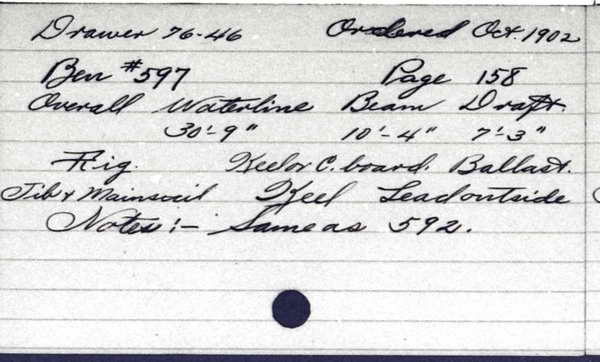 Drawer 76-46 Ordered Oct. 1902
Ben #597 Page 158
Overall Waterline Beam Draft.
30'-9" 10'-4" 7'-3"
Rig. Keel or C. board. Ballast.
Jib & Mainsail Keel Lead outside
Notes:- Same as 592.